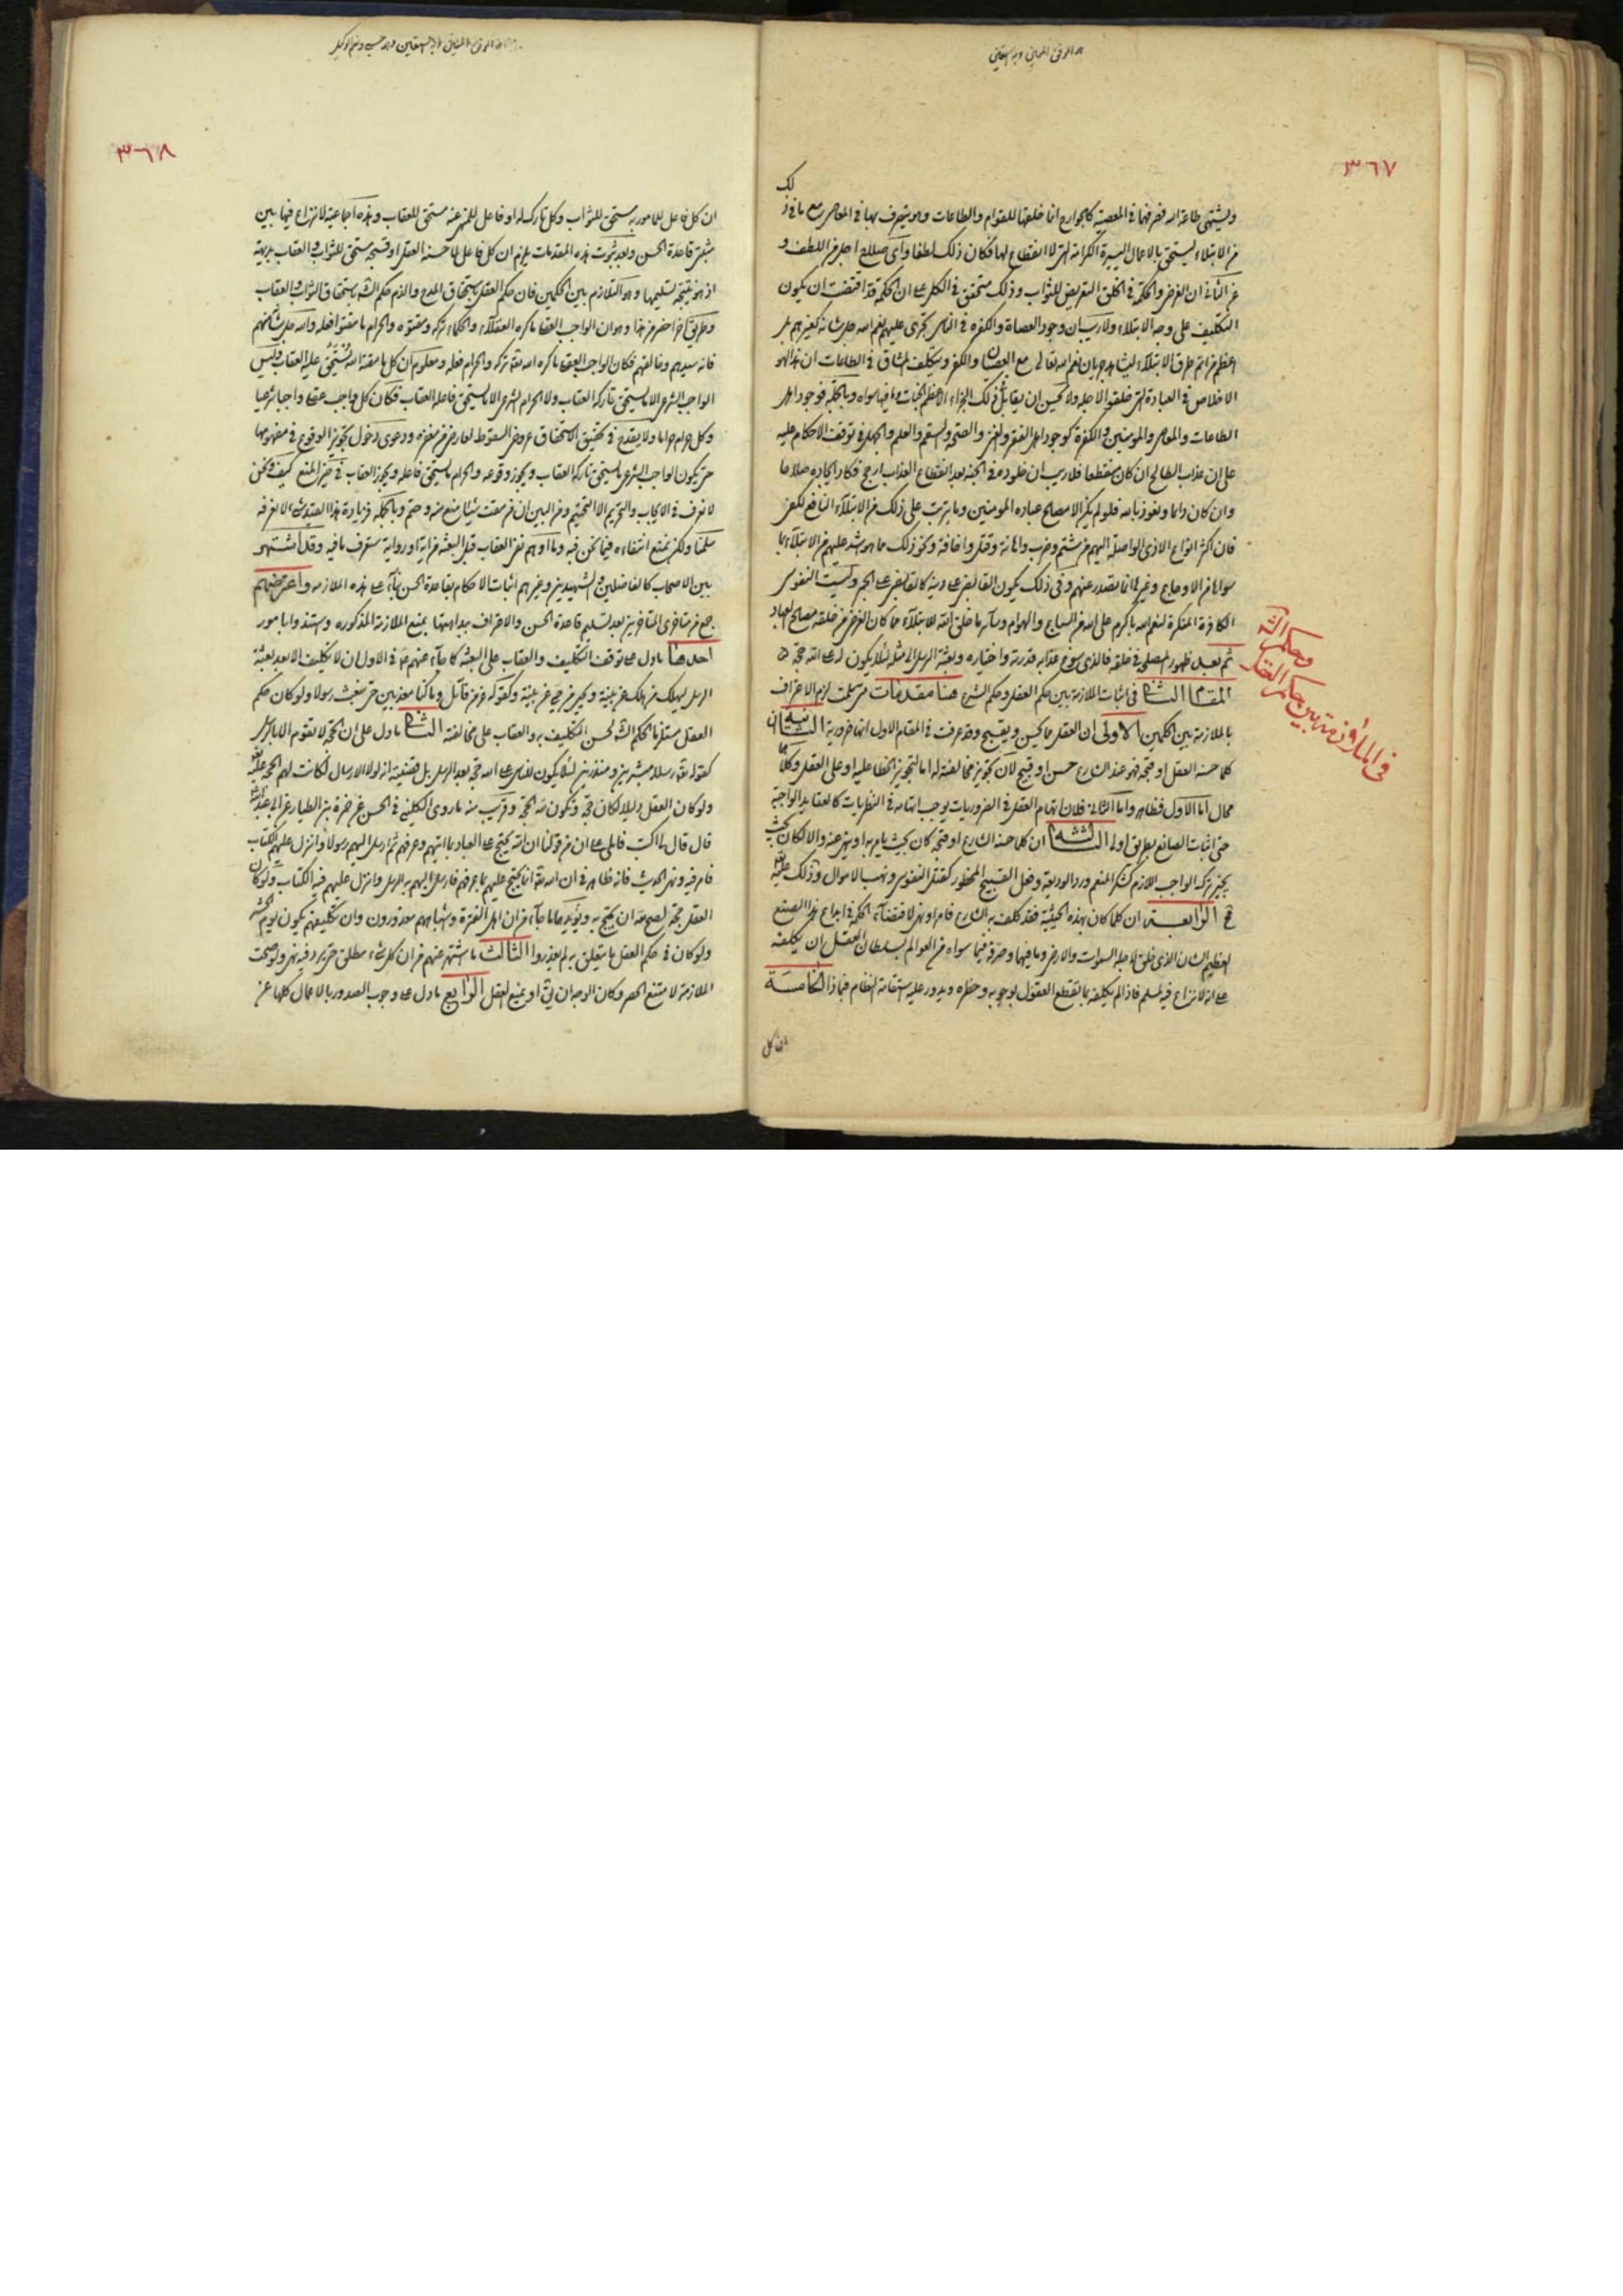 ٣٦٧
لك
ويشتهى طاعة الله فصرفها فى المعصية كالجوارح انما خلقها للقوام والطاعات وهو يتصرف بها فى المعاصى مع ما فى ذ
من الابتلاء ليستحق بالاعمال اليسيرة الكرامة التى لا انقطاع لها فكان ذلك لطفا واى صلاح اجل من اللطف و
عن الثانى ان الغرض والحكمة فى الخلق التعريض للثواب وذلك متحقق فى الكل على ان الحكمة قد اقتضت ان يكون
التكليف على وجه الابتلاء ولا ريب ان وجود العصاة والكفره فى الناس تجرى عليهم نعم الله جل شانه كغيرهم بل
اعظم من اتم طرق الابتلاء ليشاهد جريان نعم الله تعالى مع العصيان والكفر ويتكلف المشاق فى الطاعات ان هذا لهو
الاخلاص فى العبادة التى خلقوا لاجله ولا يحسن ان يقابل ذلك الجزاء الاعظم الجنات وما فيها سواه وبالجملة فوجود اهل
الطاعات والمعاصى والمومنين والكفرة كوجود اهل الفقر والغنى والصحة والسقم والعلم والجهل فى توقف الاحكام عليه
على ان عذاب الطالح ان كان منقطعا فلا ريب ان خلوده فى الجنة بعد انقطاع العذاب ارجح فكان ايجاده صلاحا
وان كان دائما ونعوذ بالله فلو لم يكن الا مصلحة عباده المومنين وما يترتب على ذلك من الابتلاء النافع لكفى
فان اكثر انواع الاذى الواصلة اليهم من شتم وضرب واهانة وقتل واخافة ونحو ذلك مما هو شد عليهم من الابتلاء بما
سواها من الاوجاع وغيرها انما يصدر عنهم وفى ذلك يكون القابض على دينه كالقابض على الجمر وليست النفوس
الكافرة المنكرة لنعم الله باكرم على الله من السباع والهوام وساير ما خلق الله للابتلاء مما كان الغرض من خلقه مصالح العباد
ثم بعد ظهور المصلحة فى خلقه فالذى سوغ عذابه قدرته واختياره وبعثة الرسل الى مثله لئلا يكون له على الله حجة
المقام الثانى فى اثبات الملازمة بين حكم العقل وحكم الشرع هنا مقدمات متى سلمت لزم الاعتراف
بالملازمة بين الحكمين الاولى ان العقل مما يحسن ويقبح وقد عرفت فى المقام الاول انها ضرورية الثانية ان
كلما حسنه العقل او قبحه فهو عند الشارع حسن او قبيح لان تجويز مخالفته له اما لتجويز الخطا عليه او على العقل وكلاهما
محال اما الاول فظاهر واما الثانى فلان اتهام العقل فى الضروريات يوجب اتهامه فى النظريات كالعقايد الواجبة
حتى اثبات الصانع بطريق اولى الثالثة ان كلما حسنه الشارع او قبحه كان بحيث يامر به او ينهى عنه والا لكان بحيث
يجيز ترك الواجب اللازم كشكر المنعم ورد الوديعة وفعل القبيح المحظور كقتل النفوس ونهب الاموال وذلك عليه
قبيح الرابعة ان كلما كان بهذه الحيثية فقد كلف به الشارع فامر او نهى لاقتضاء الحكمة فى ابداع هذا الصنع
العظيم الشان الذى خلق لاجله السموات والارض وما فيها وصرفه فيما سواه من العوالم بسلطان العقل ان يكلفه
على انه لا نزاع فيه لمسلم فاذا لم يكلفه بما تقطع العقول بوجوبه وحظره ويدور عليه استقامة النظام فبماذا الخامسة
ان كل
فى الملازمة بين حكم العقل
وحكم الشرع
٣٦٨
ان كل فاعل للمامور به مستحق للثواب وكل تارك له او فاعل للمنهى عنه مستحق للعقاب وهذه اجماعية لا نزاع فيها بين
مثبتى قاعدة الحسن وبعد ثبوت هذه المقدمات يلزم ان كل فاعل لما حسنه العقل او قبحه مستحق للثواب والعقاب بديهة
اذ هو نتيجة تسليمها وهو التلازم بين الحكمين فان حكم العقل استحقاق المدح والذم حكم الشرع استحقاق الثواب والعقاب
وطريق اخر اخصر من هذا وهو ان الواجب العقلى ما كره العقلاء والحكماء تركه ومقتوه والحرام ما مقتوا فعله والله جل شانه
فانه سيدهم وخالقهم فكان الواجب العقلى ما كره الله تعالى تركه والحرام فعله ومعلوم ان كل ما مقته الله يستحق عليه العقاب وليس
الواجب الشرعى الا ما يستحق تاركه العقاب ولا الحرام الشرعى الا ما يستحق فاعله العقاب فكان كل واجب عقلى واجبا شرعيا
وكل حرام حراما ولا يقدح فى تحقيق الاستحقاق عروض السقوط لعارض من مغفرة ودعوى دخول تجويز الوقوع فى مفهومها
حتى يكون الواجب الشرعى ما يستحق تاركه العقاب ويجوز وقوعه والحرام ما يستحق فاعله ويجوز العقاب فى حيز المنع كيف ونحن
لا نعرف فى الايجاب والتحريم الا التحتيم ومن البين ان من مقت شيئا منع منه وحتم وبالجملة فزيادة هذا القيد شىء لا نعرفه
سلمنا ولكن نمنع انتفاءه فيما نحن فيه وما اوهم نفى العقاب قبل البعثة من اية او رواية ستعرف ما فيه وقد اشتهر
بين الاصحاب كالفاضلين والشهيدين وغيرهم اثبات الاحكام بقاعدة الحسن بناء على هذه الملازمه واعترضهم
جمع من متاخرى المتاخرين بعد تسليم قاعدة الحسن والاعتراف ببداهتها بمنع الملازمة المذكوره واستندوا بامور
احدها ما دل على توقف التكليف والعقاب على البعثة كما جاء عنهم فى الاول ان لا تكليف الا بعد بعثة
الرسل ليهلك من هلك عن بينة ويحيى من حى عن بينة وكقوله عز من قائل وما كنا معذبين حتى نبعث رسولا ولو كان حكم
العقل مستلزما لحكم الشرع لحسن التكليف به والعقاب على مخالفته الثانى ما دل على ان الحجة لا تقوم الا بالرسل
كقوله تعالى رسلا مبشرين ومنذرين لئلا يكون للناس على الله حجة بعد الرسل بل قضيته انه لولا الارسال لكانت لهم الحجة عليه
ولو كان العقل دليلا لكان حجة وتكون لله الحجة وقريب منه ما روى الكلينى فى الحسن عن حمزة بن الطيار عن ابى عبد الله
قال قال لى اكتب فاملى على ان من قولنا ان الله يحتج على العباد بما اتيهم وعرفهم ثم ارسل اليهم رسولا وانزل عليهم الكتاب
فامر فيه ونهى الحديث فانه ظاهر فى ان الله تعالى انما يحتج عليهم بما عرفهم فارسل اليهم به الرسل وانزل عليهم فيه الكتاب ولو كان
العقل حجة لصح له ان يحتج به ويؤيدهما ما جاء من ان اهل الفترة واشباههم معذورون وان تكليفهم يكون يوم الحشر
ولو كان فى حكم العقل ما يتعلق به لم يعذروا الثالث ما اشتهر عنهم من ان كل شىء مطلق حتى يرد فيه نهى ولو صحت
الملازمة لامتنع الحصر وكان الوجه ان يق او يمنع العقل الرابع ما دل على وجوب الصدور بالاعمال كلها عن